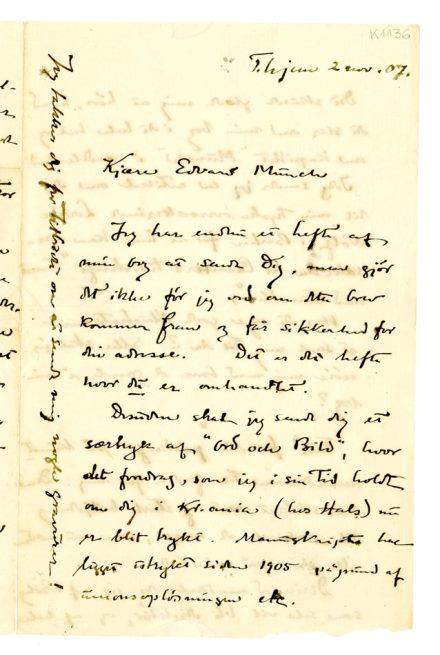 K1136
T.hjem 2 nov. 07.
Kjære Edvard Munch
Jeg har endnu et hefte af
min bog at sende dig, men gjør
det ikke før jeg ved om dette brev
kommer frem og får sikkerhed for
din adresse. Det er det hefte
hvor du er omhandlet.
Desuden skal jeg sende dig et
særtryk af "Ord och Bild", hvor
det foredrag, som jeg i sin tid holdt
om dig i Kr.ania (hos Hals) nu
er blit trykt. Manuskriptet har
ligget utrykt siden 1905 pågrund af
unionsopløsningen etc.
Jeg takker dig for tilbudet om at sende mig nogle gravurer!